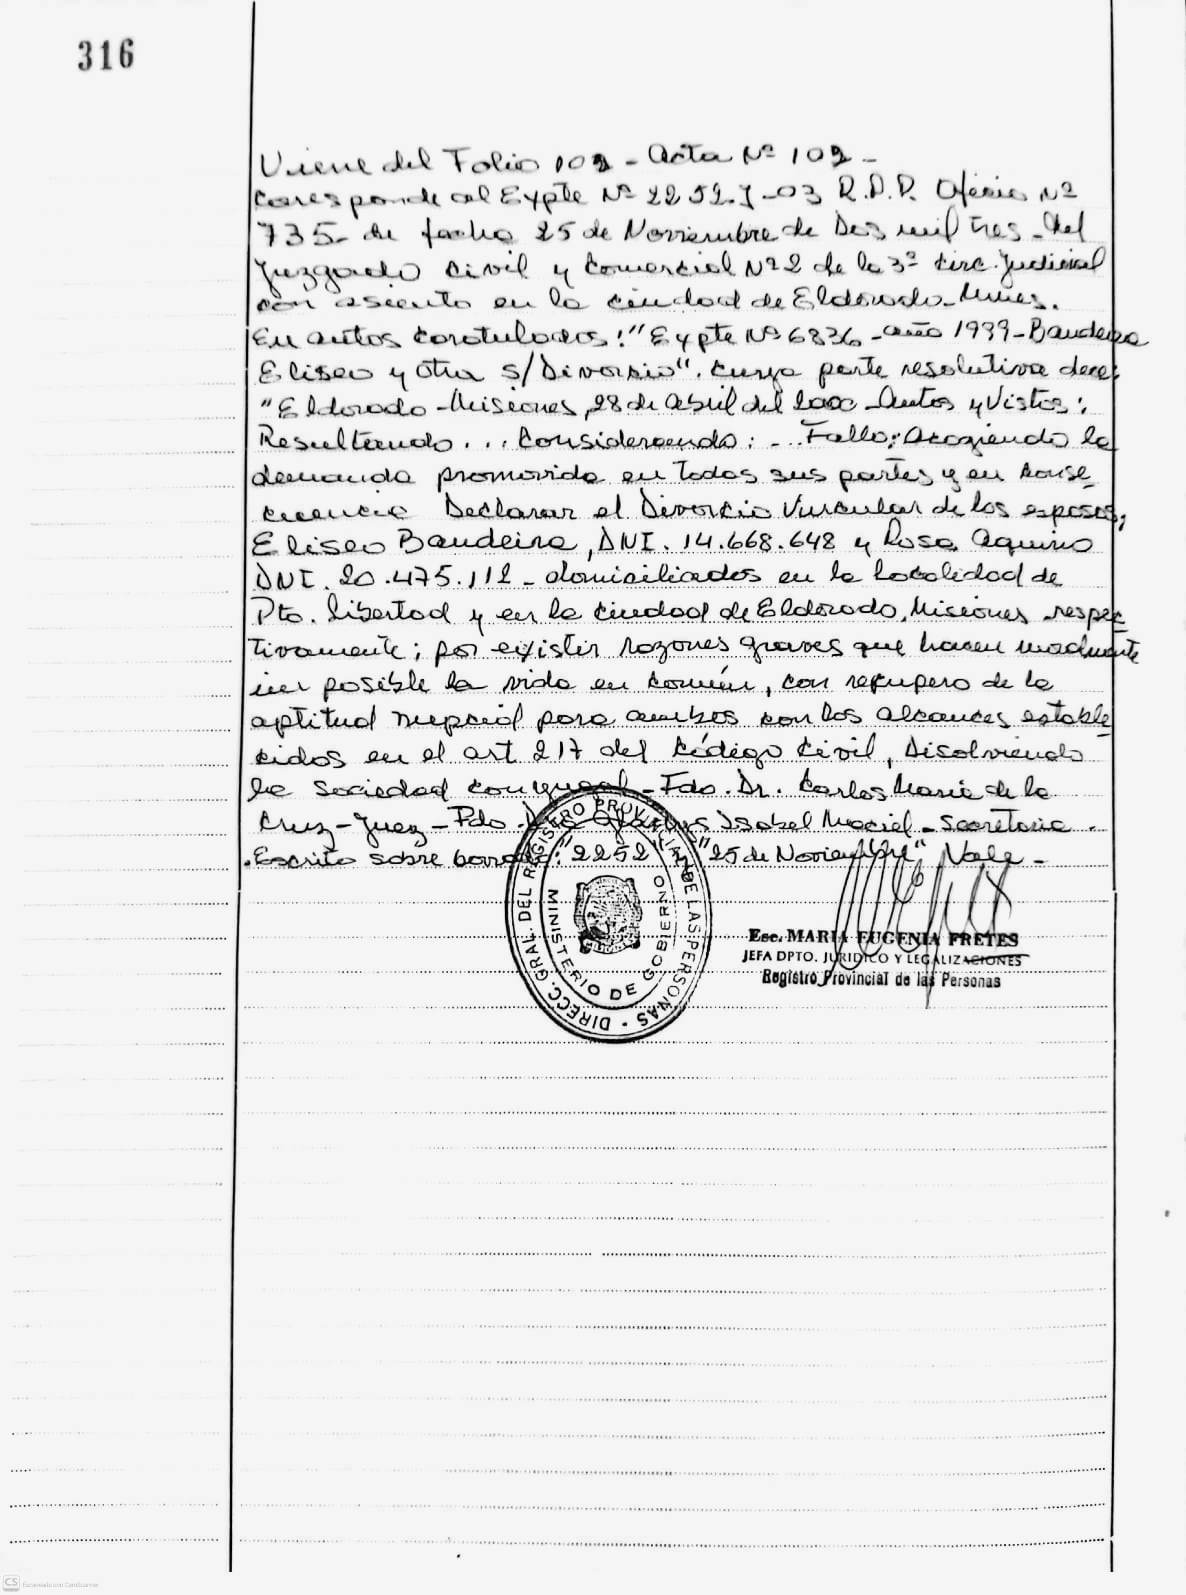 316
Viene del Folio 102 - Acta Nº 102 -
Corresponde al Expte Nº 2252-J-03 R.P.P. Oficio Nº
735- de fecha 25 de Noviembre de Dos mil tres - del
Juzgado Civil y Comercial Nº 2 de la 3ª Circ. Judicial
con asiento en la ciudad de Eldorado - Mnes.
En autos carotulados: "Expte Nº 6836 - año 1999 - Bandeira
Eliseo y Otra s/Divorcio". cuya parte resolutiva dice:
"Eldorado - Misiones, 28 de abril del 2000 - Autos y Vistos:
Resultando... Considerando: - Fallo: Acogiendo la
demanda promovida en todas sus partes y en conse
cuencia Declarar el Divorcio Vincular de los esposos,
Eliseo Bandeira, DNI. 14.668.648 y Rosa Aquino
DNI. 20.475.112 - domiciliados en la localidad de
Pto. Libertad y en la ciudad de Eldorado, Misiones - respec
tivamente; por existir razones graves que hacen moralmente
imposible la vida en común, con recupero de la
aptitud nupcial para ambos con los alcances estable
cidos en el art 217 del Código Civil, Disolviendo
la sociedad conyugal - Fdo. Dr. Carlos Maria de la
Cruz - Juez - Fdo. Isabel Maciel - Secretaria.
.Escrito sobre borrado: "2252" "25 de Noviembre" Vale -
DIRECC. GRAL. DEL REGISTRO PROVINCIAL DE LAS PERSONAS
MINISTERIO DE GOBIERNO
Esc. MARIA EUGENIA FRETES
JEFA DPTO. JURIDICO Y LEGALIZACIONES
Registro Provincial de las Personas
CS Escaneado con CamScanner